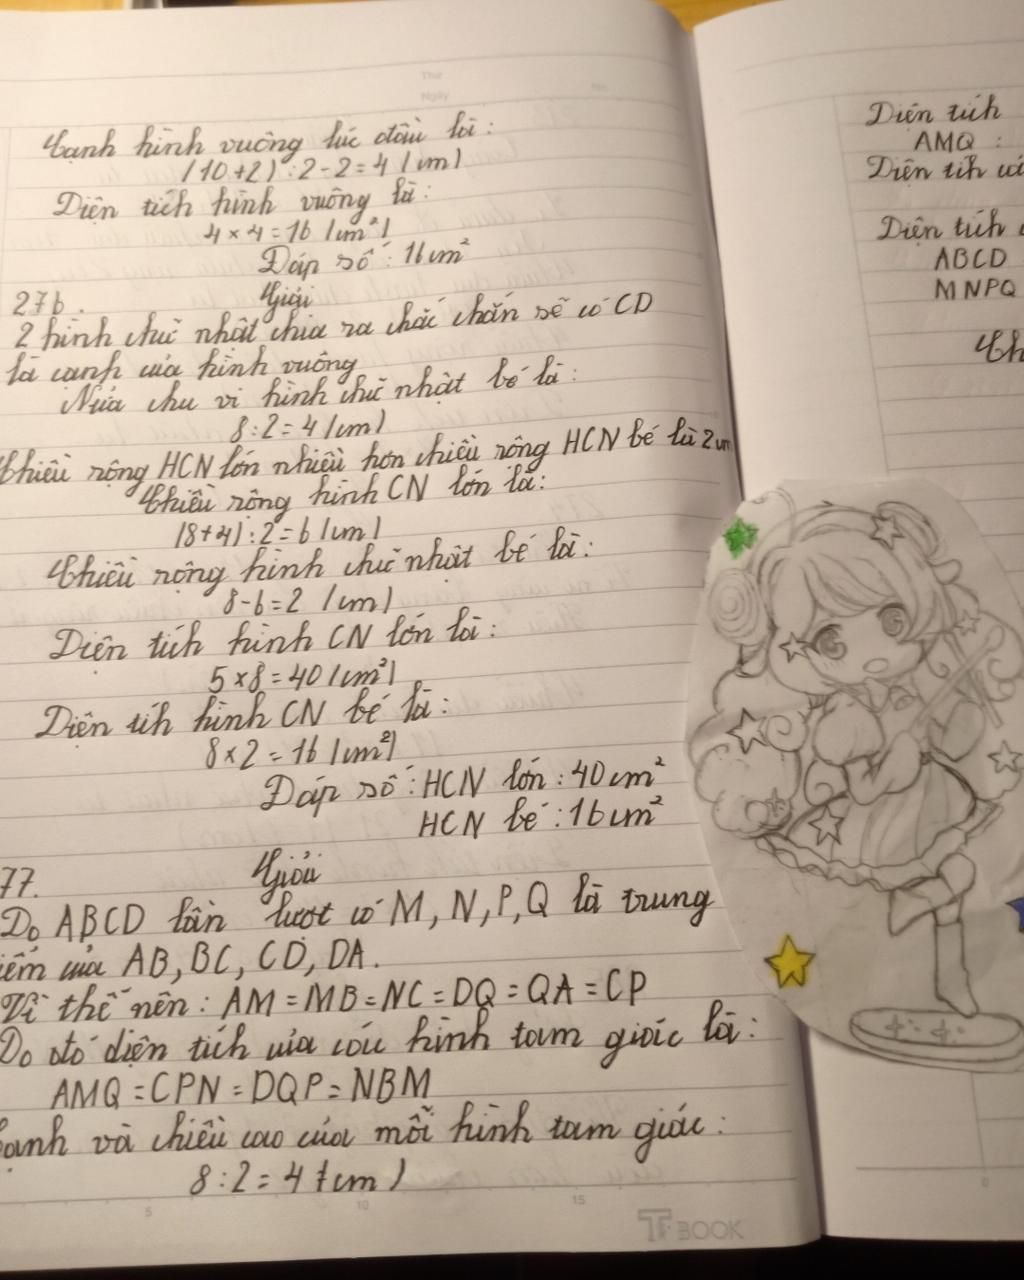 Thứ
Ngày
No.
Cạnh hình vuông lúc đầu là:
(10+2):2-2=4 (cm)
Diện tích hình vuông là:
4×4=16 (cm²)
Đáp số: 16cm²
27b.
Giải
2 hình chữ nhật chia ra chắc chắn sẽ có CD
là cạnh của hình vuông
Nửa chu vi hình chữ nhật bé là:
8:2=4 (cm)
Chiều rộng HCN lớn nhiều hơn chiều rộng HCN bé là 2cm
Chiều rộng hình CN lớn là:
(8+4):2=6 (cm)
Chiều rộng hình chữ nhật bé là:
8-6=2 (cm)
Diện tích hình CN lớn là:
5×8=40 (cm²)
Diện tích hình CN bé là:
8×2=16 (cm²)
Đáp số: HCN lớn: 40cm²
HCN bé: 16cm²
77.
Giải
Do ABCD lần lượt có M, N, P, Q là trung
iểm của AB, BC, CD, DA.
Vì thế nên: AM=MB=NC=DQ=QA=CP
Do đó diện tích của các hình tam giác là:
AMQ=CPN=DQP=NBM
Cạnh và chiều cao của mỗi hình tam giác:
8:2=4 (cm)
5 10 15
TF BOOK
Diện tích
AMQ:
Diện tích củ
Diện tích
ABCD
MNPQ
0